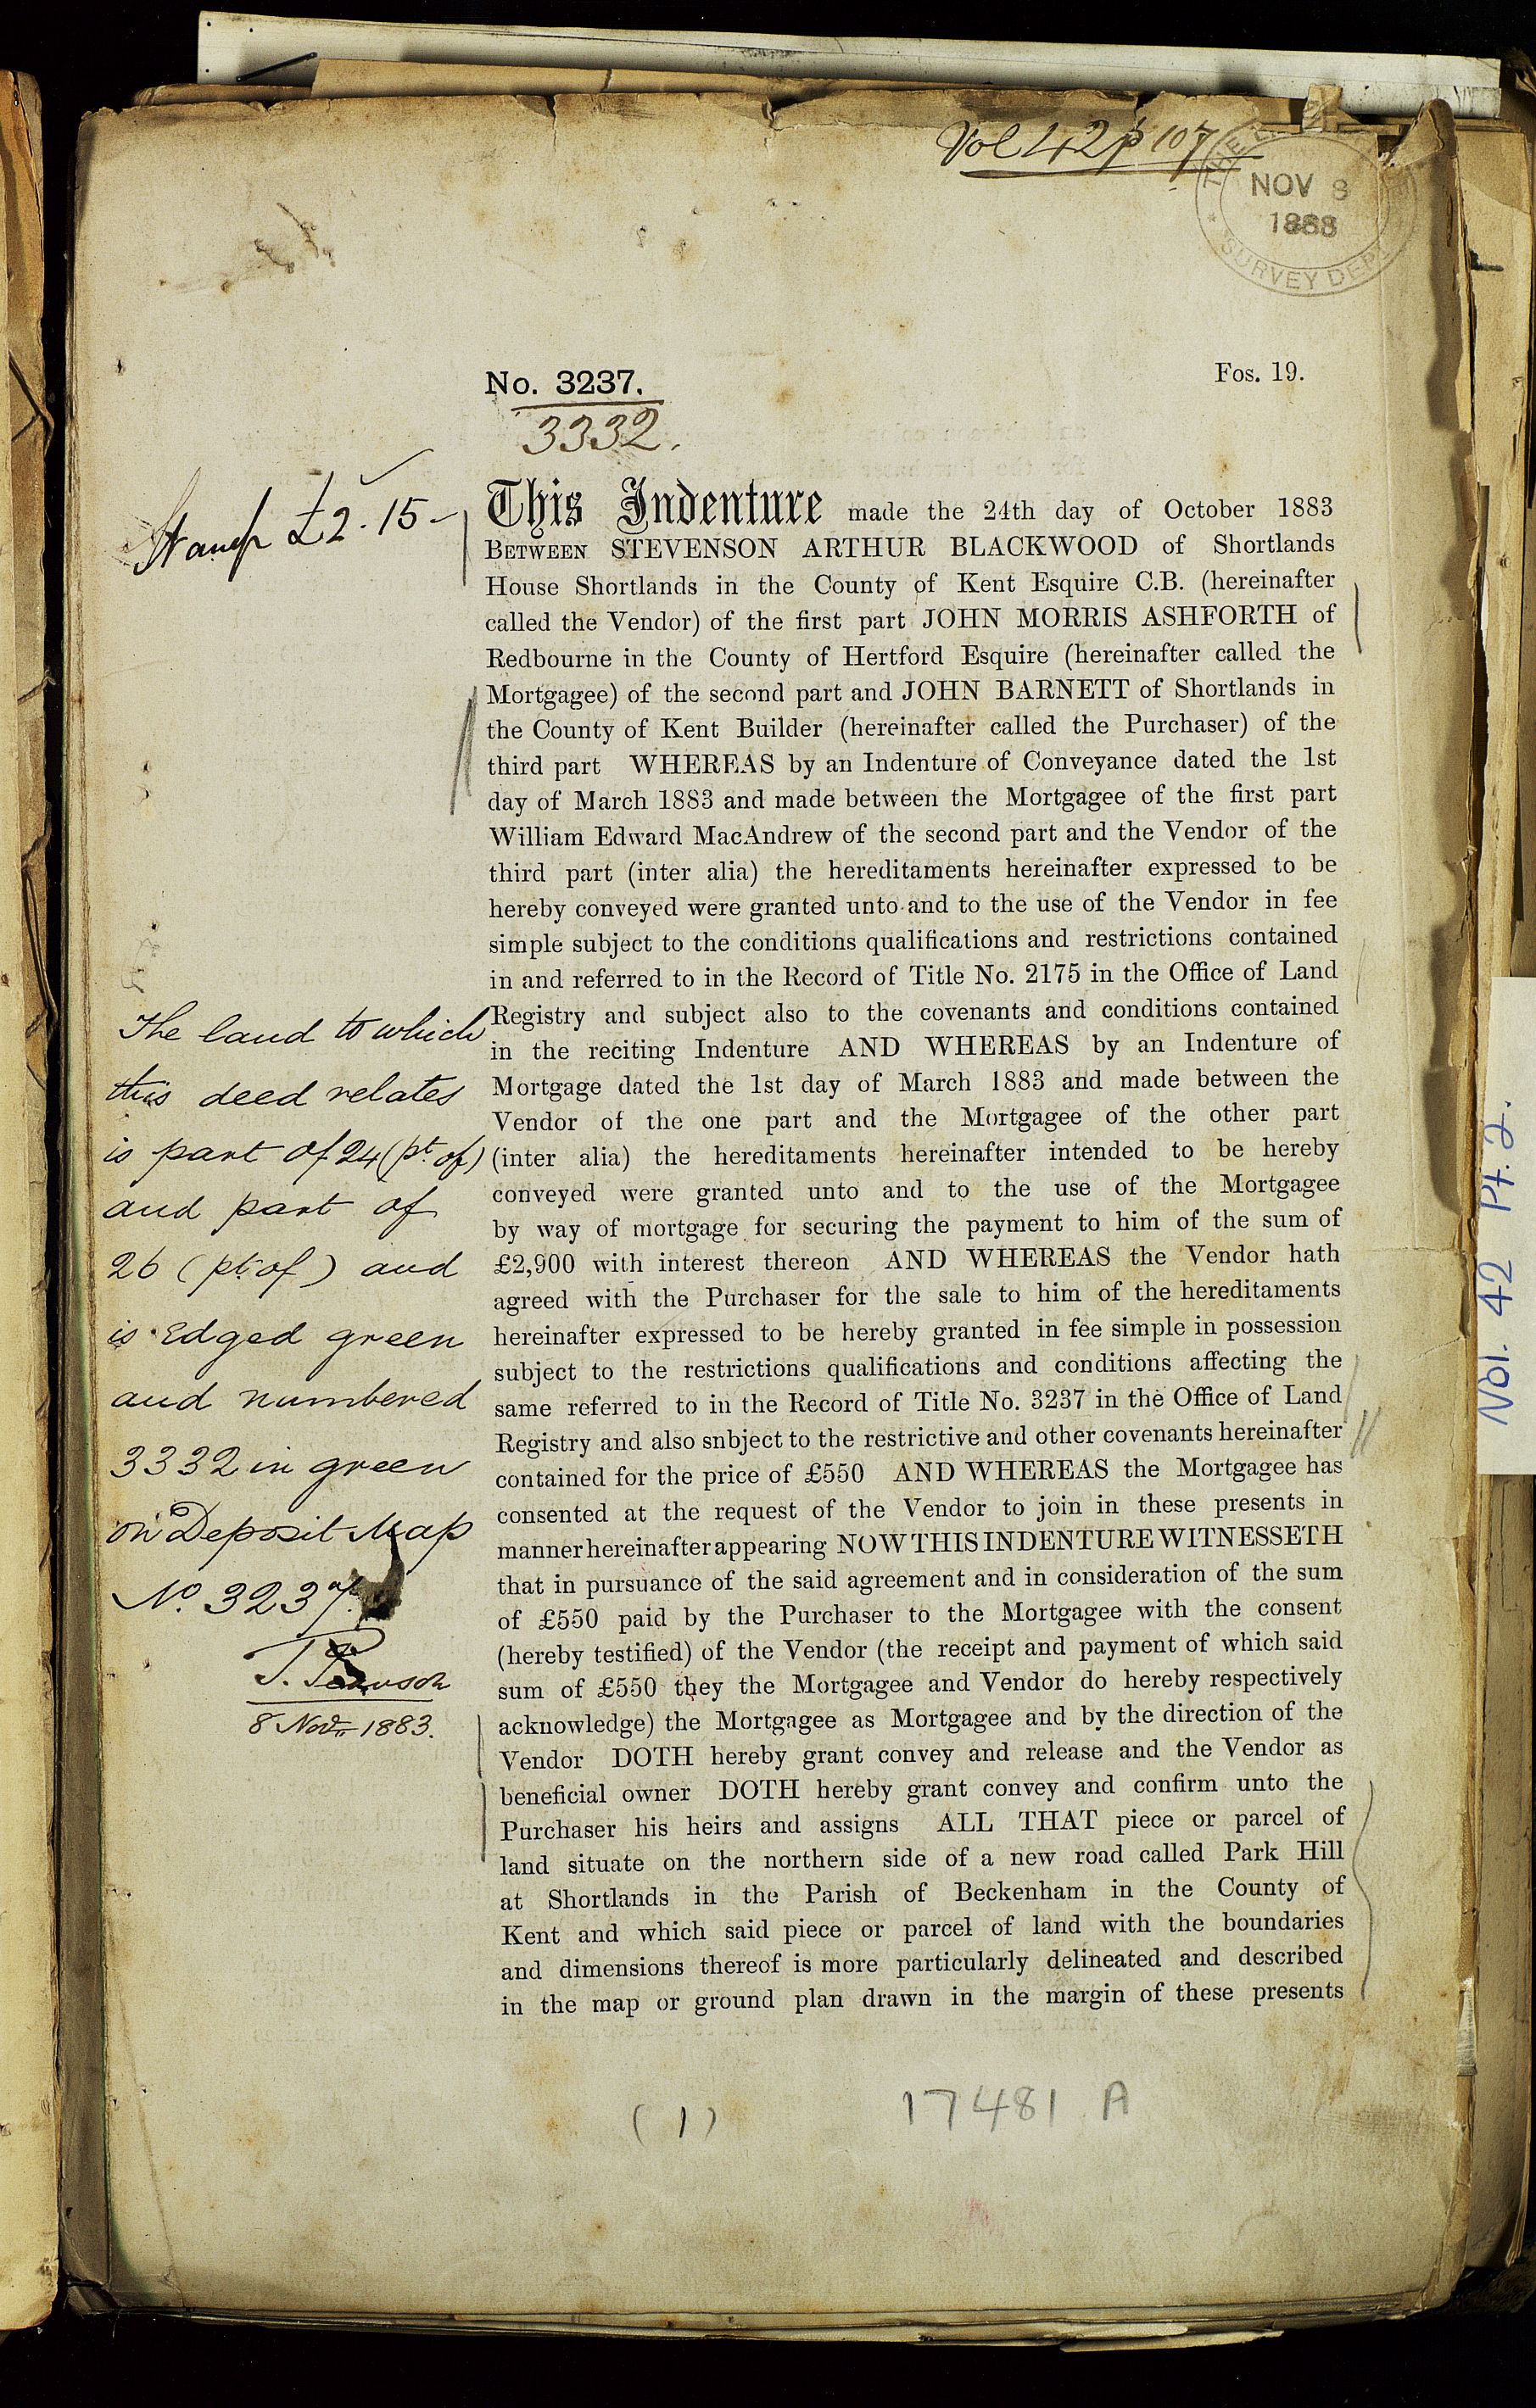 Vol 42 p 107
NOV 8
1883
SURVEY DEPT
No. 3237.
Fos. 19.
3332.
Stamp £2.15-
This Indenture made the 24th day of October 1883
BETWEEN STEVENSON ARTHUR BLACKWOOD of Shortlands
House Shortlands in the County of Kent Esquire C.B. (hereinafter
called the Vendor) of the first part JOHN MORRIS ASHFORTH of
Redbourne in the County of Hertford Esquire (hereinafter called the
Mortgagee) of the second part and JOHN BARNETT of Shortlands in
the County of Kent Builder (hereinafter called the Purchaser) of the
third part WHEREAS by an Indenture of Conveyance dated the 1st
day of March 1883 and made between the Mortgagee of the first part
William Edward MacAndrew of the second part and the Vendor of the
third part (inter alia) the hereditaments hereinafter expressed to be
hereby conveyed were granted unto and to the use of the Vendor in fee
simple subject to the conditions qualifications and restrictions contained
in and referred to in the Record of Title No. 2175 in the Office of Land
Registry and subject also to the covenants and conditions contained
in the reciting Indenture AND WHEREAS by an Indenture of
Mortgage dated the 1st day of March 1883 and made between the
Vendor of the one part and the Mortgagee of the other part
(inter alia) the hereditaments hereinafter intended to be hereby
conveyed were granted unto and to the use of the Mortgagee
by way of mortgage for securing the payment to him of the sum of
£2,900 with interest thereon AND WHEREAS the Vendor hath
agreed with the Purchaser for the sale to him of the hereditaments
hereinafter expressed to be hereby granted in fee simple in possession
subject to the restrictions qualifications and conditions affecting the
same referred to in the Record of Title No. 3237 in the Office of Land
Registry and also snbject to the restrictive and other covenants hereinafter
contained for the price of £550 AND WHEREAS the Mortgagee has
consented at the request of the Vendor to join in these presents in
manner hereinafter appearing NOW THIS INDENTURE WITNESSETH
that in pursuance of the said agreement and in consideration of the sum
of £550 paid by the Purchaser to the Mortgagee with the consent
(hereby testified) of the Vendor (the receipt and payment of which said
sum of £550 they the Mortgagee and Vendor do hereby respectively
acknowledge) the Mortgagee as Mortgagee and by the direction of the
Vendor DOTH hereby grant convey and release and the Vendor as
beneficial owner DOTH hereby grant convey and confirm unto the
Purchaser his heirs and assigns ALL THAT piece or parcel of
land situate on the northern side of a new road called Park Hill
at Shortlands in the Parish of Beckenham in the County of
Kent and which said piece or parcel of land with the boundaries
and dimensions thereof is more particularly delineated and described
in the map or ground plan drawn in the margin of these presents
The land to which
this deed relates
is part of 24 (pt. of)
and part of
26 (pt. of) and
is Edged green
and numbered
3332 in green
on Deposit Map
No. 3237.
8 Novr. 1883.
(1)
17481 A
Vol. 42 Pt. 2.